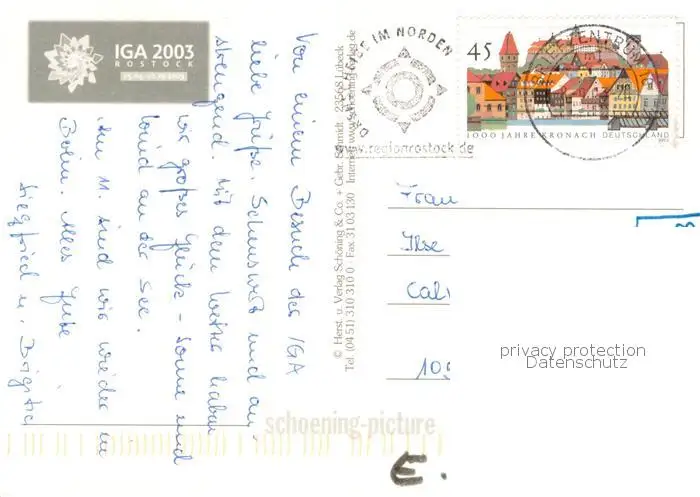 IGA 2003
ROSTOCK
25.04.-12.10.2003
Von einem Besuch der IGA
liebe Grüße. Sehenswert und an-
strengend. Mit dem Wetter haben
wir großes Glück - Sonne und
Wind an der See.
Am 11. sind wir wieder in
Berlin. Alles Gute
Siegfried u. Brigitte
© Herst. u. Verlag Schöning & Co. + Gebr. Schmidt · 23568 Lübeck
Tel. (04 51) 310 310 0 · Fax 31 03 130 Internet: www.schoening-verlag.de
schoening-picture
IM NORDEN
www.regionrostock.de
45
1000 JAHRE KRONACH DEUTSCHLAND
BRIEFZENTRUM
Frau
Ilse
privacy protection
Datenschutz
E.